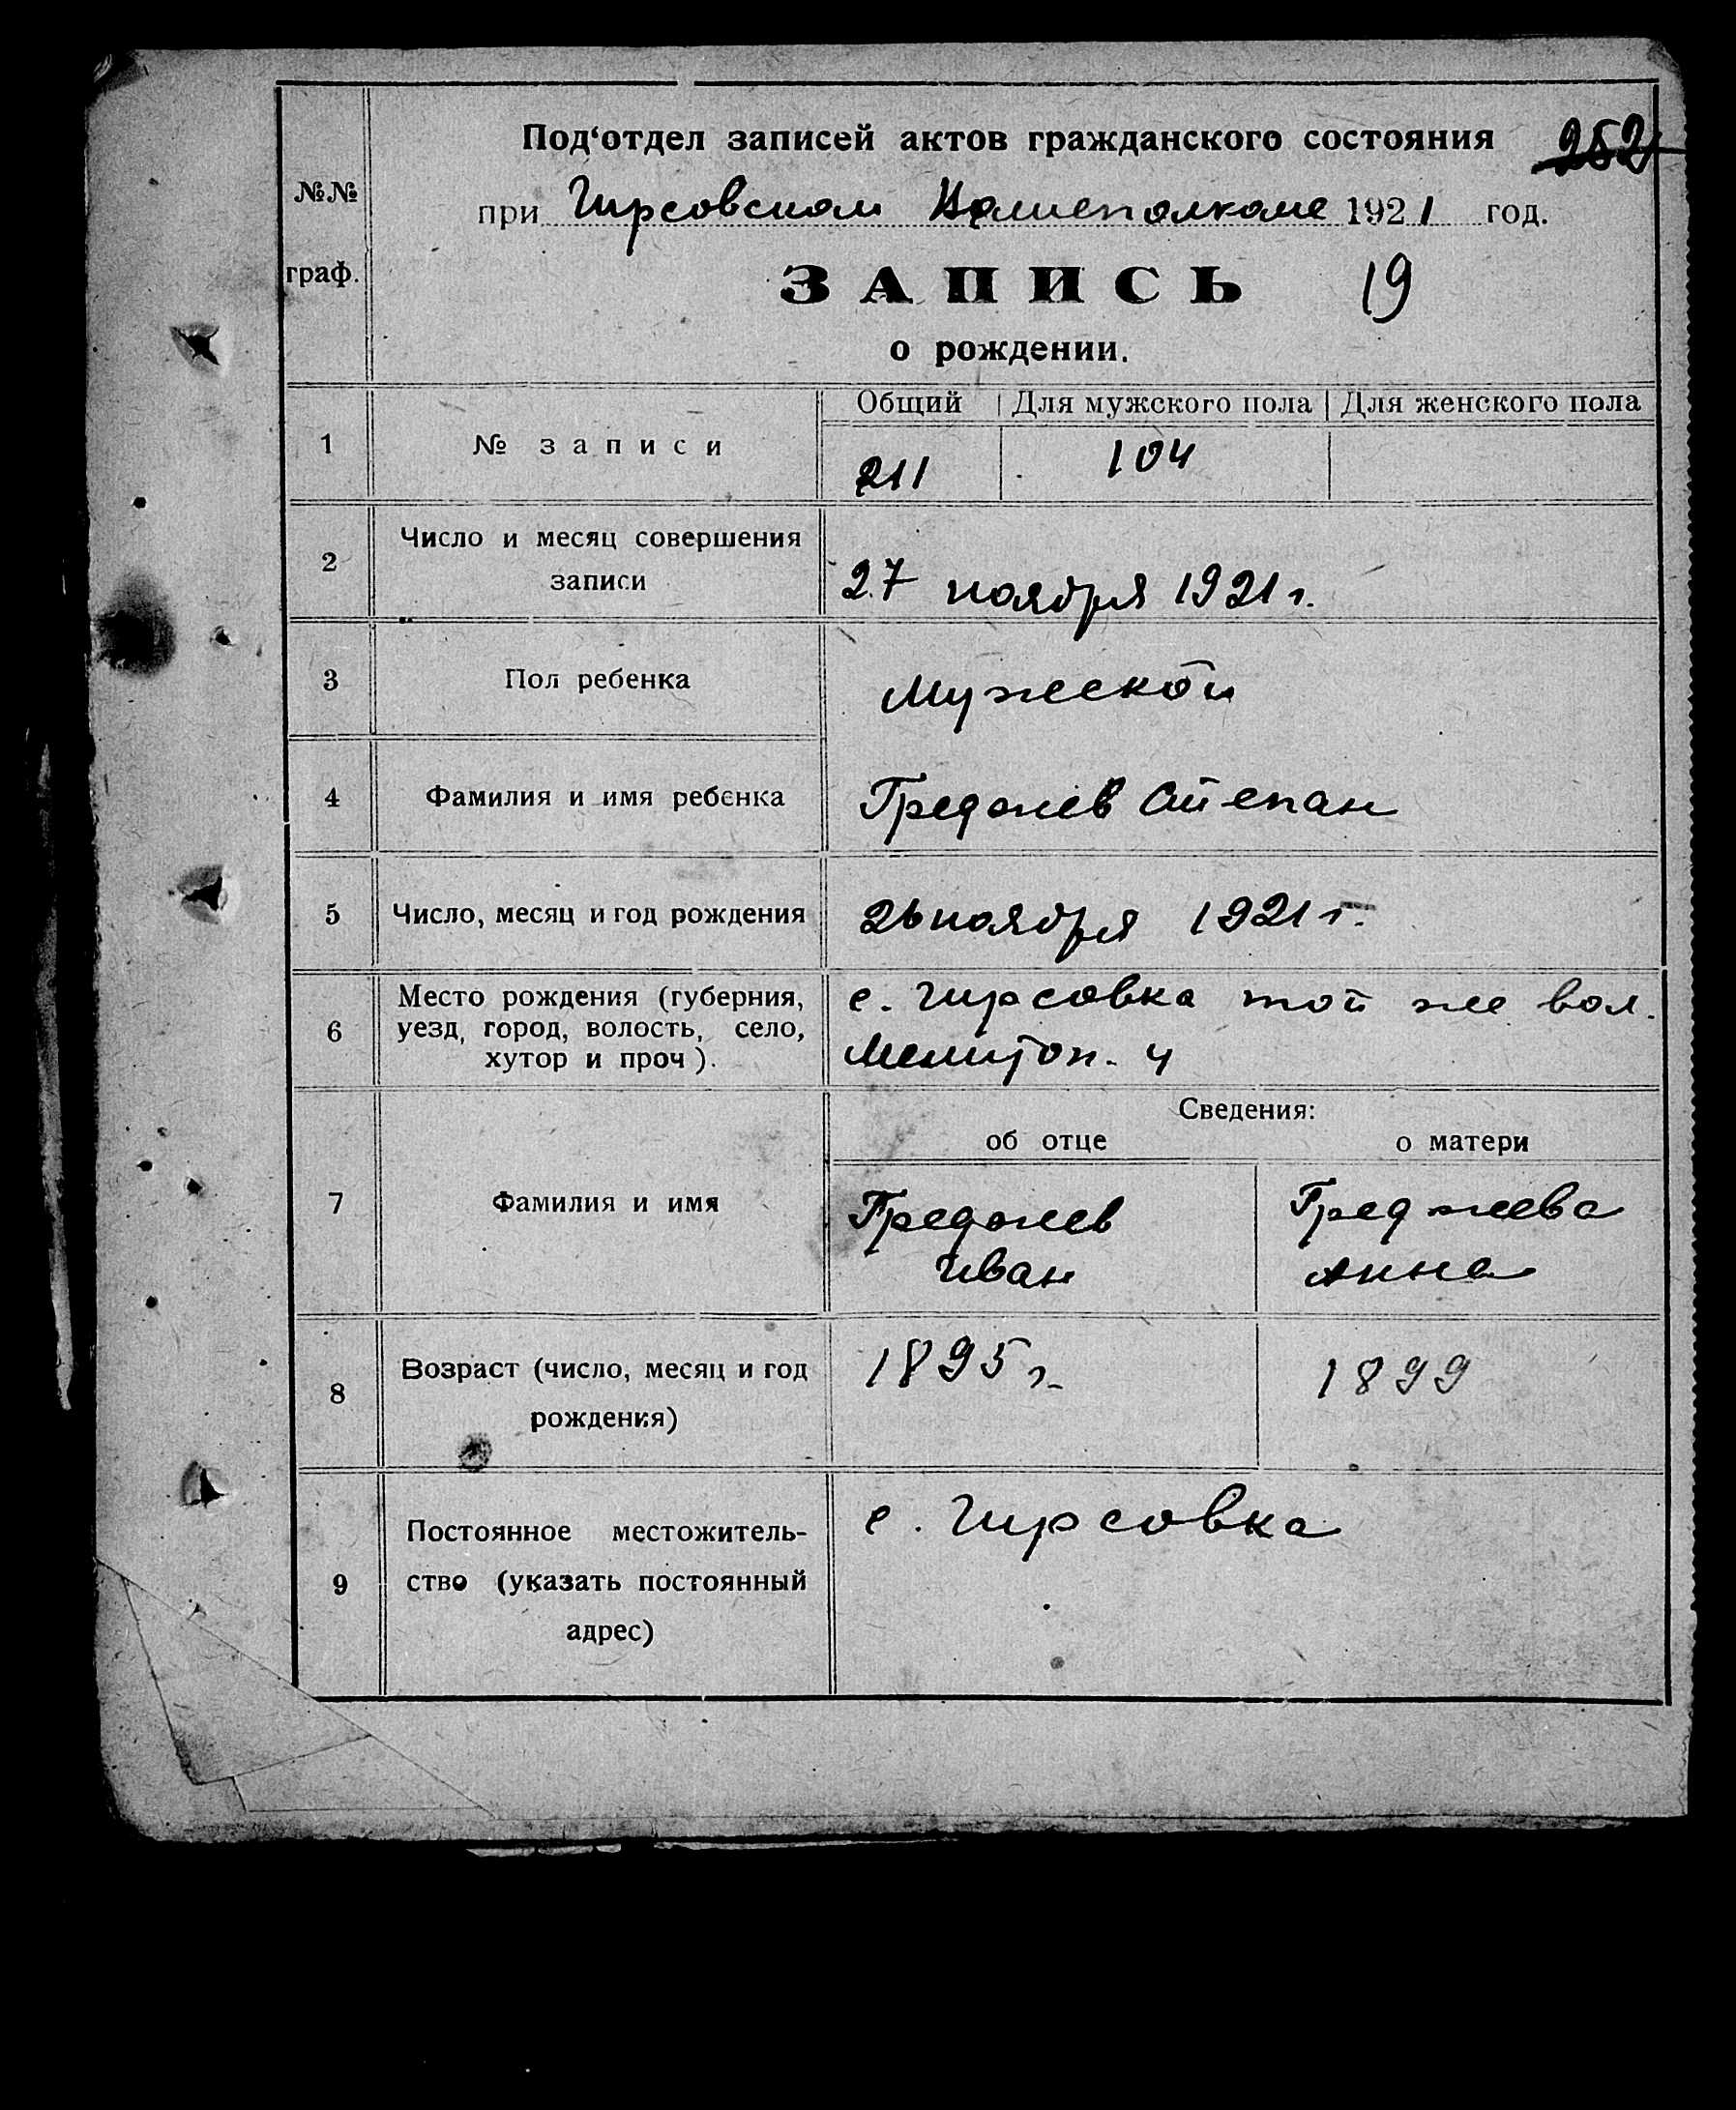 Под‘отдел записей актов гражданского состояния 252
№№ при Гирсовском Волисполкоме 1921 год.
граф. ЗАПИСЬ 19
о рождении.
Общий Для мужского пола Для женского пола
1 № записи 211 104
2 Число и месяц совершения
записи 27 ноября 1921 г.
3 Пол ребенка Мужской
4 Фамилия и имя ребенка Греджев Степан
5 Число, месяц и год рождения 26 ноября 1921 г.
6 Место рождения (губерния, с. Гирсовка той же вол.
уезд, город, волость, село, Мелитоп. у
хутор и проч).
Сведения:
об отце о матери
7 Фамилия и имя Греджев Греджева
Иван Анна
8 Возраст (число, месяц и год 1895 г. 1899
рождения)
9 Постоянное местожитель- с. Гирсовка
ство (указать постоянный
адрес)